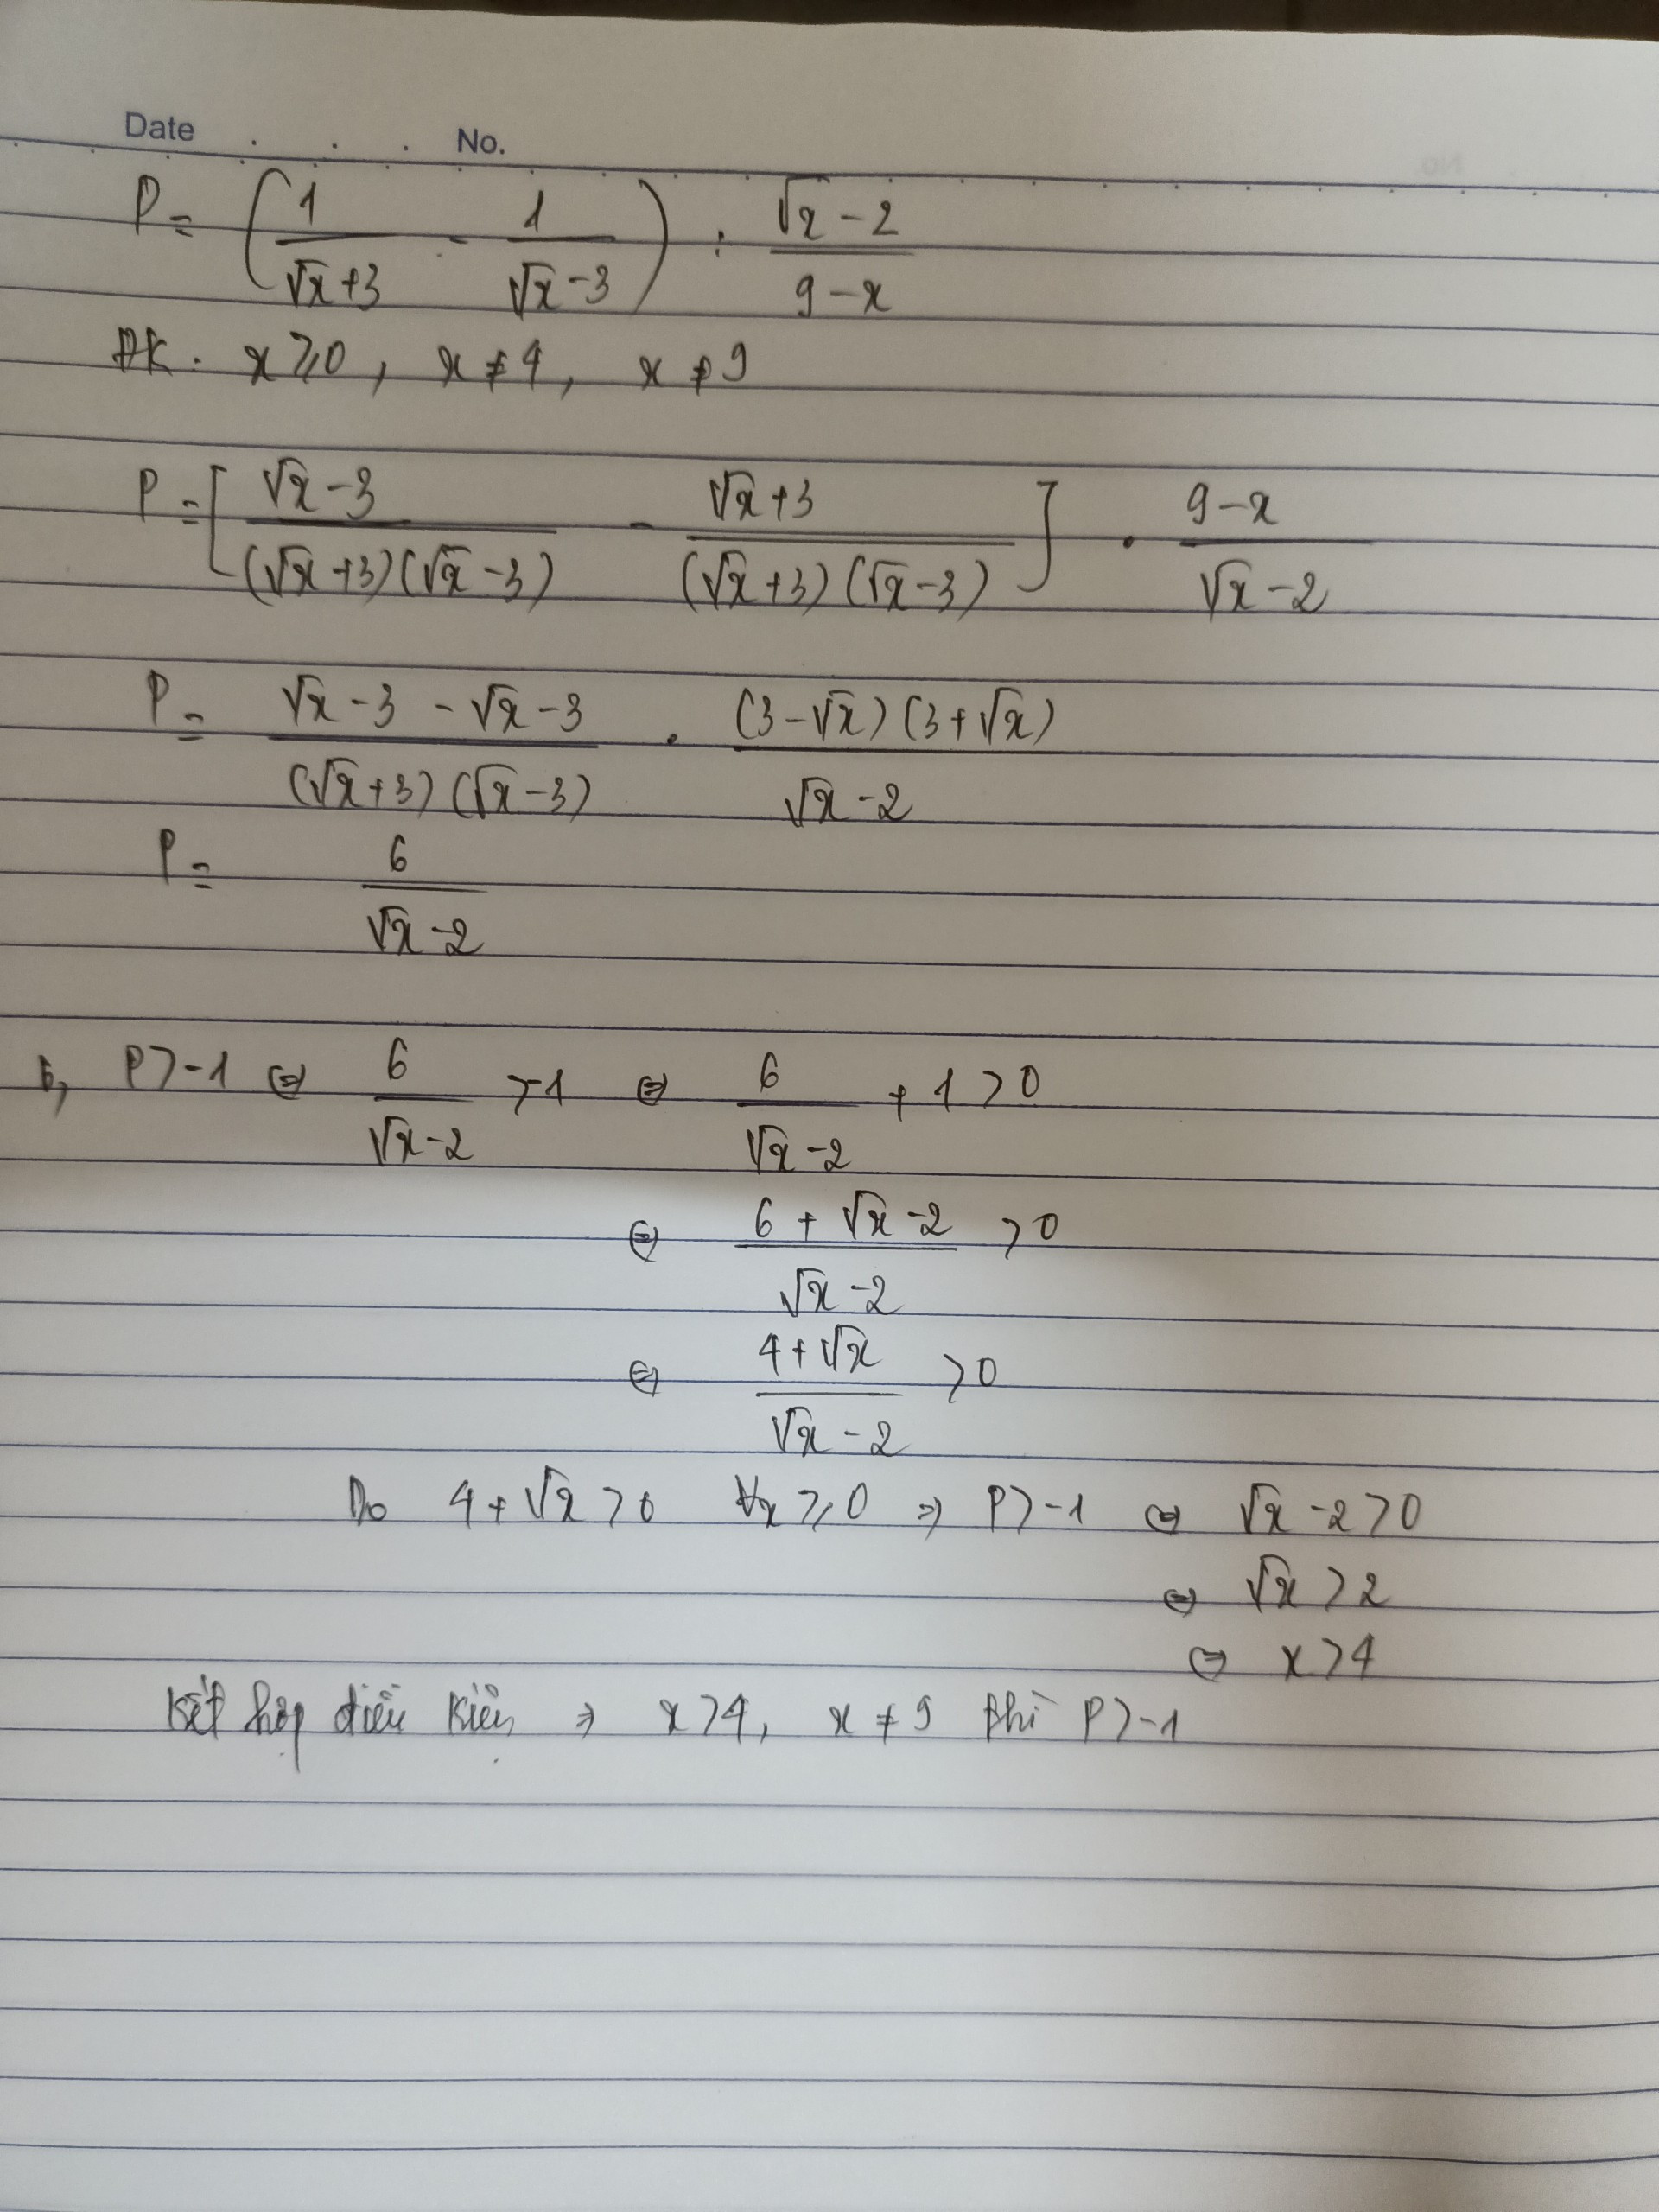 Date . . . No.
P = (1/(√x+3) - 1/(√x-3)) : (√x-2)/(9-x)
ĐK. x ⩾ 0, x ≠ 4, x ≠ 9
P = [(√x-3)/((√x+3)(√x-3)) - (√x+3)/((√x+3)(√x-3))] . (9-x)/(√x-2)
P = (√x-3-√x-3)/((√x+3)(√x-3)) . ((3-√x)(3+√x))/(√x-2)
P = 6/(√x-2)
b, P > -1 ⇔ 6/(√x-2) > -1 ⇔ 6/(√x-2) + 1 > 0
⇔ (6+√x-2)/(√x-2) > 0
⇔ (4+√x)/(√x-2) > 0
Do 4+√x > 0 ∀x ⩾ 0 ⇒ P > -1 ⇔ √x-2 > 0
⇔ √x > 2
⇔ x > 4
Kết hợp điều kiện ⇒ x > 4, x ≠ 9 thì P > -1